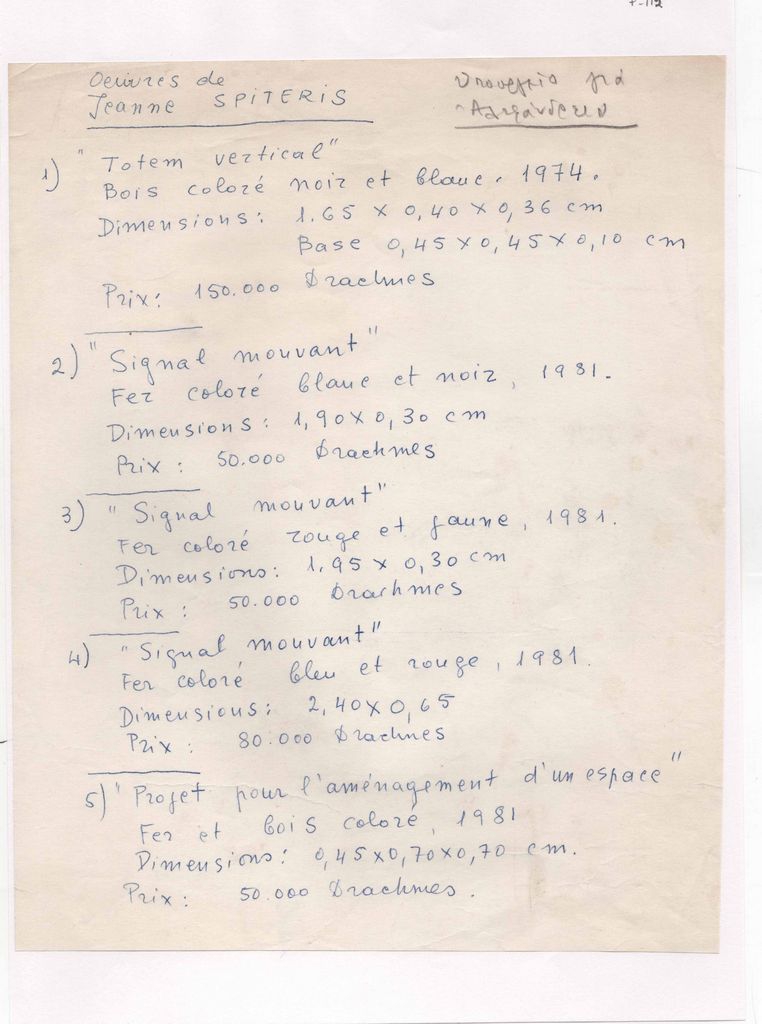 P-112
Oeuvres de
Jeanne SPITERIS
για
1) "Totem vertical"
Bois coloré noir et blanc. 1974.
Dimensions: 1.65 x 0,40 x 0,36 cm
Base 0,45 x 0,45 x 0,10 cm
Prix: 150.000 Drachmes
2) "Signal mouvant"
Fer coloré blanc et noir, 1981.
Dimensions: 1,90 x 0,30 cm
Prix: 50.000 Drachmes
3) "Signal mouvant"
Fer coloré rouge et jaune, 1981.
Dimensions: 1.95 x 0,30 cm
Prix: 50.000 Drachmes
4) "Signal mouvant"
Fer coloré bleu et rouge, 1981.
Dimensions: 2,40 x 0,65
Prix: 80.000 Drachmes
5) "Projet pour l'aménagement d'un espace"
Fer et bois coloré, 1981
Dimensions: 0,45 x 0,70 x 0,70 cm.
Prix: 50.000 Drachmes.